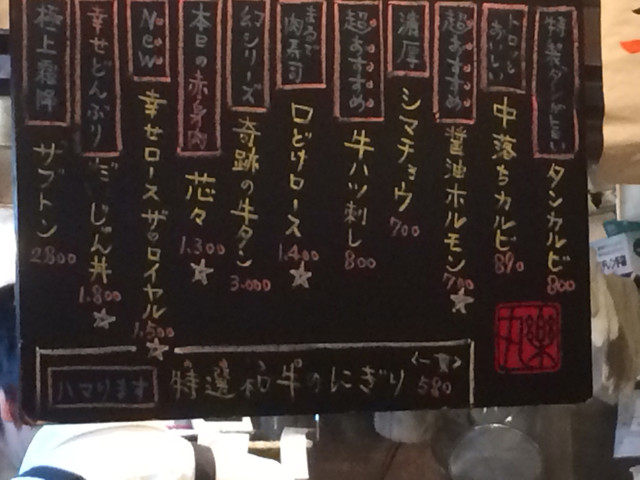 特製ダレが旨い
タンカルビ
800
トロっと
おいしい
中落ちカルビ
890
超おすすめ
醤油ホルモン
700
濃厚
シマチョウ
700
超おすすめ
牛ハツ刺し
800
まるで
肉寿司
口どけロース
1.400
幻シリーズ
奇跡の牛タン
3.000
本日の赤身肉
芯々
1.300
New
幸せロースザ・ロイヤル
1.500
幸せどんぶり
じゅん丼
1.800
極上霜降
ザブトン
2800
ハマります
特選和牛のにぎり
580